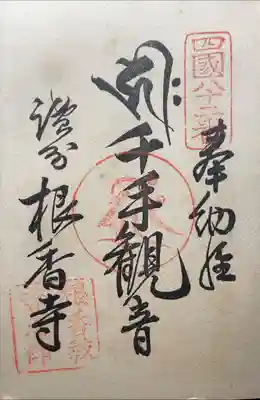 四國八十二番
奉納経
千手観音
讃州
根香寺